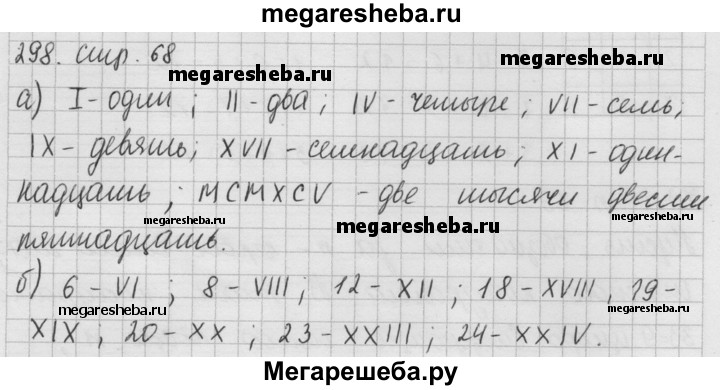 megaresheba.ru
298. стр. 68
megaresheba.ru
megaresheba.ru
а) I - один ; II - два ; IV - четыре ; VII - семь;
IX - девять; XVII - семнадцать ; XI - один-
надцать ; MCMXCV - две тысячи двести
megaresheba.ru
megaresheba.ru
megaresheba.ru
пятнадцать.
б) 6 - VI ; 8 - VIII; 12 - XII ; 18 - XVIII , 19 -
megaresheba.ru
megaresheba.ru
XIX ; 20 - XX ; 23 - XXIII ; 24 - XXIV.
Мегарешеба.ру